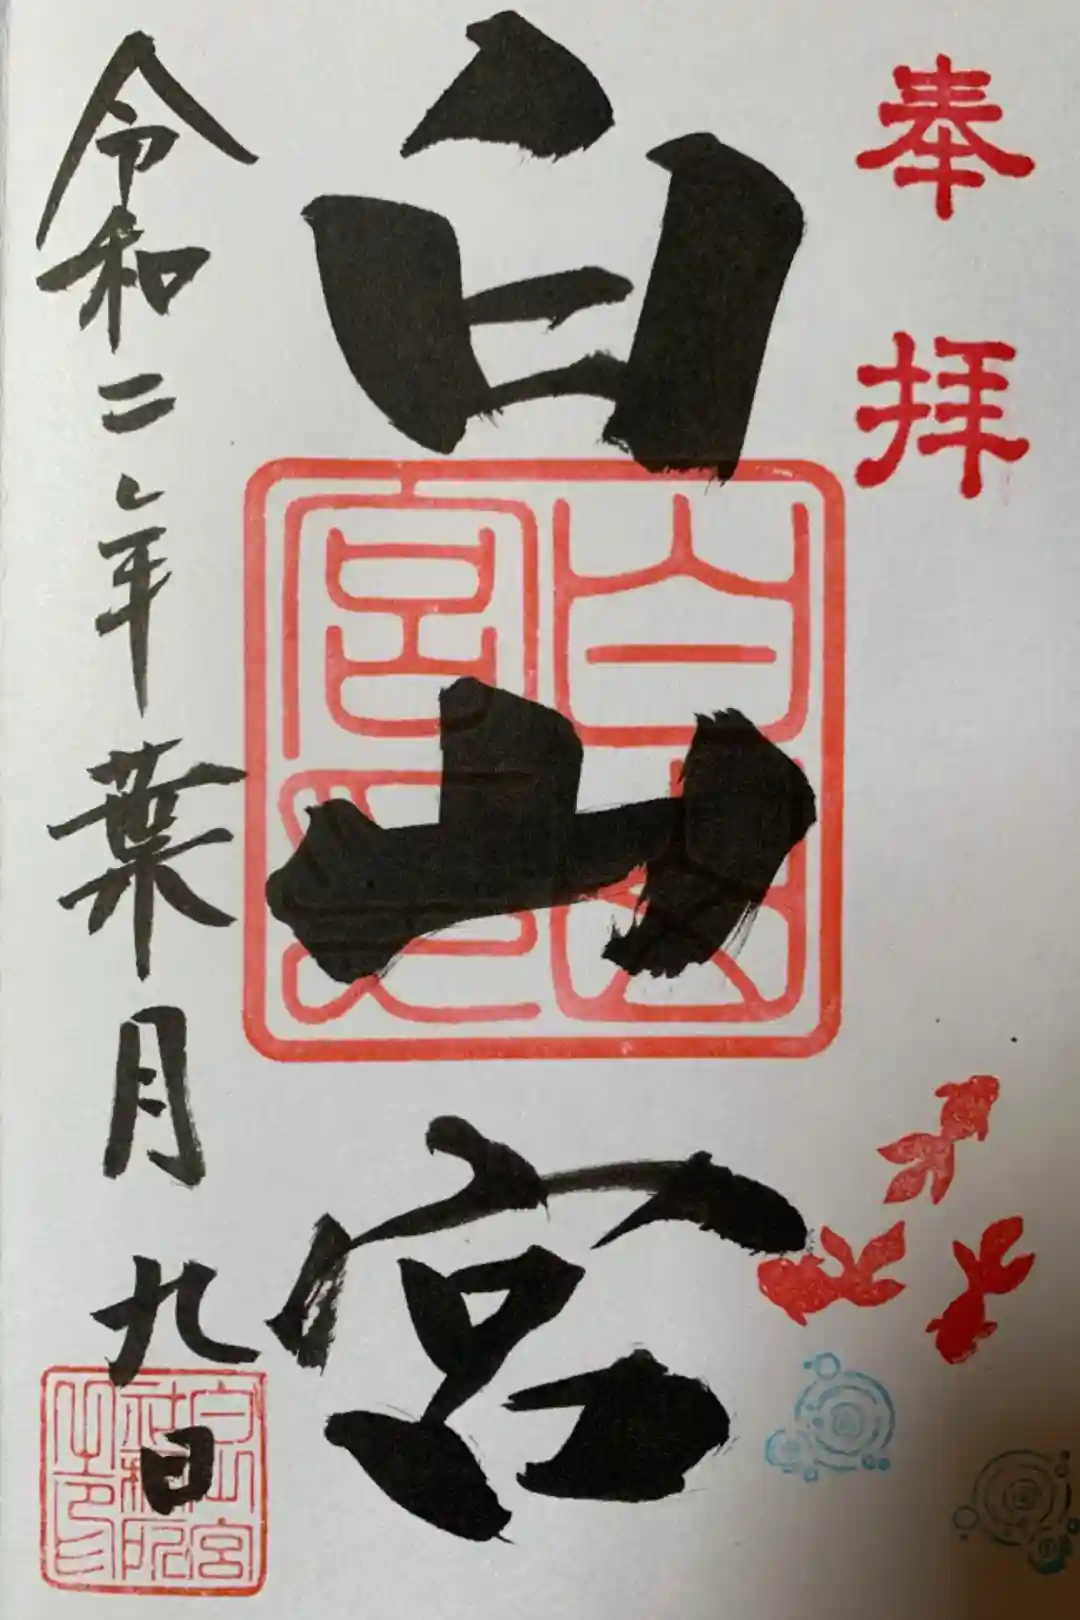 奉拝
白山宮
白山宮印
令和二年葉月九日
白山宮社務所之印